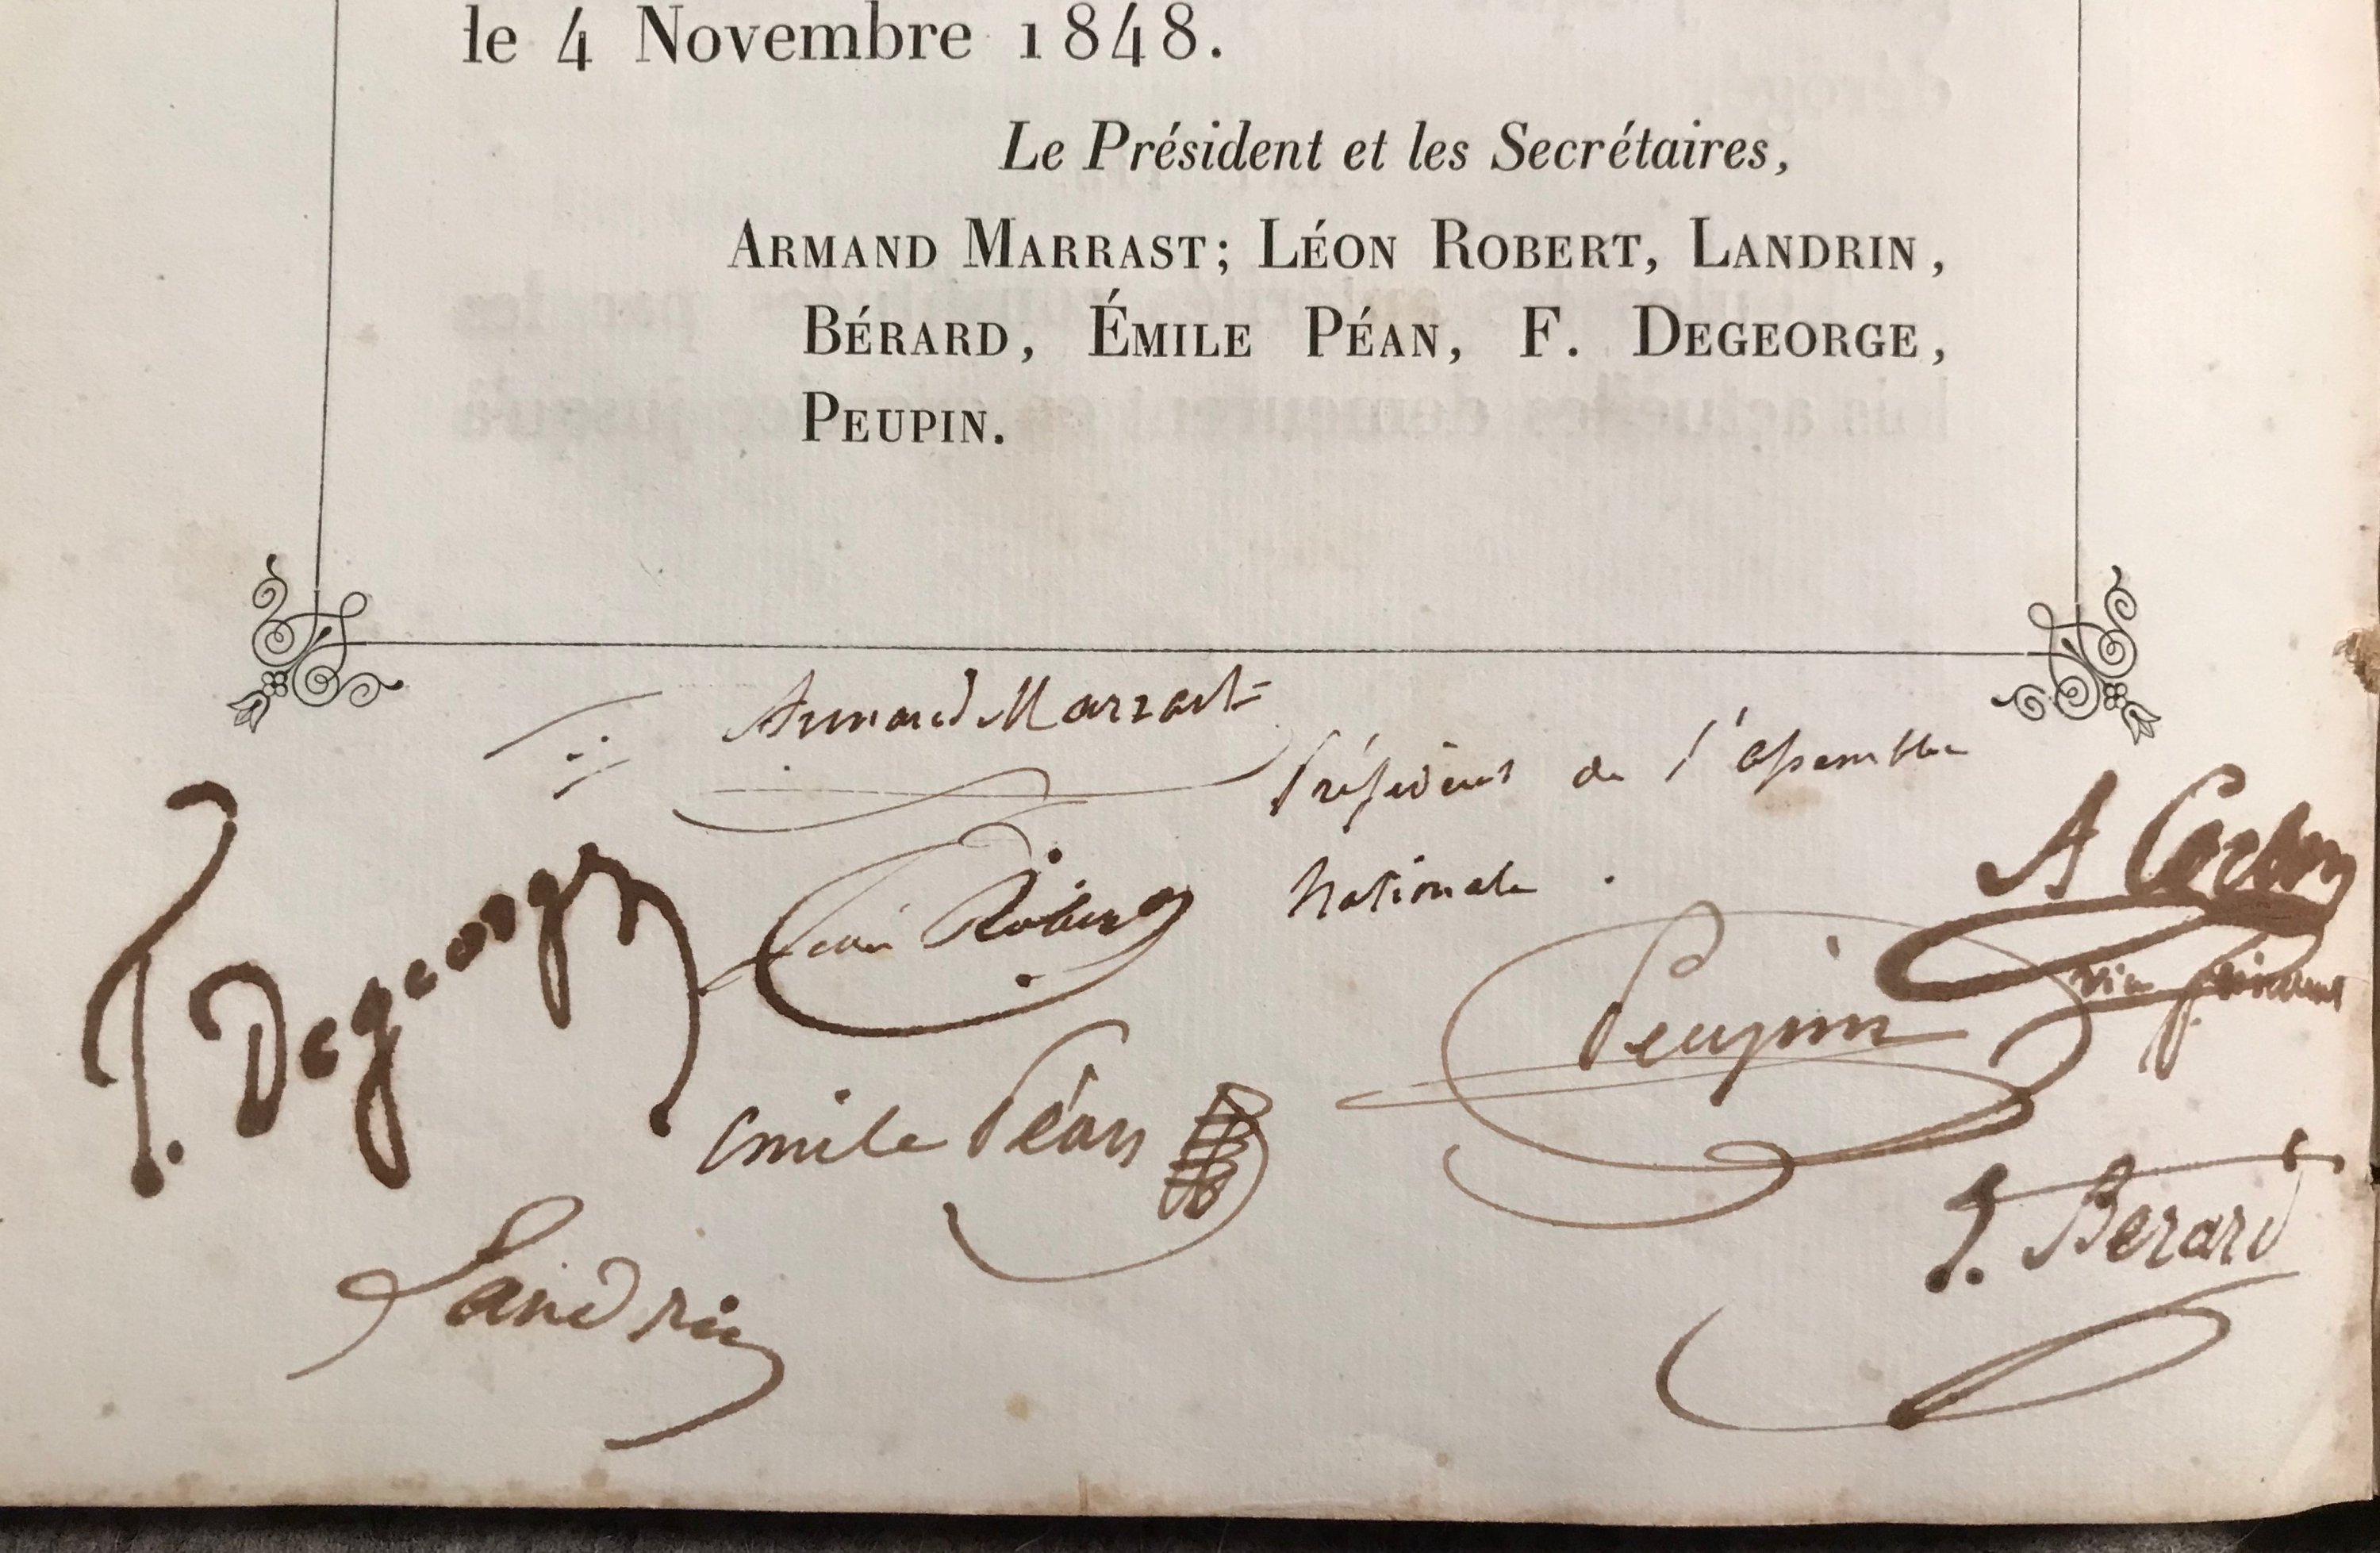 le 4 Novembre 1848.
Le Président et les Secrétaires,
ARMAND MARRAST; LÉON ROBERT, LANDRIN,
BÉRARD, ÉMILE PÉAN, F. DEGEORGE,
PEUPIN.
Armand Marrast
Président de l'assemblée
Nationale.
A Corbon
vice président
F. Degeorge
Léon Robert
Peupin
Emile Péan
Landrin
Berard